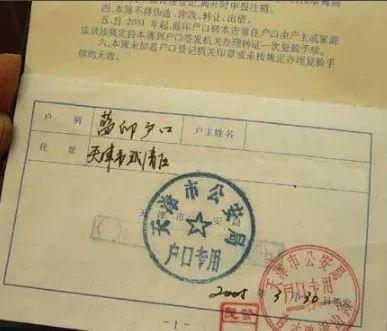 四.本簿不得伪造、涂改、转让、出借。
五.自 2001 年起,蓝印户口转本市常住户口由户主或家庭
成员按规定持本簿到户口签发机关办理转证一次复验手续。
六.本簿未加盖户口登记机关印章或未按规定办理复验手
续的无效。
户 别
蓝印户口
户主姓名
住 址
天津市
天津市公安局
户口专用
天津市公安局
户口专用
2005
3
30日签发
—1—